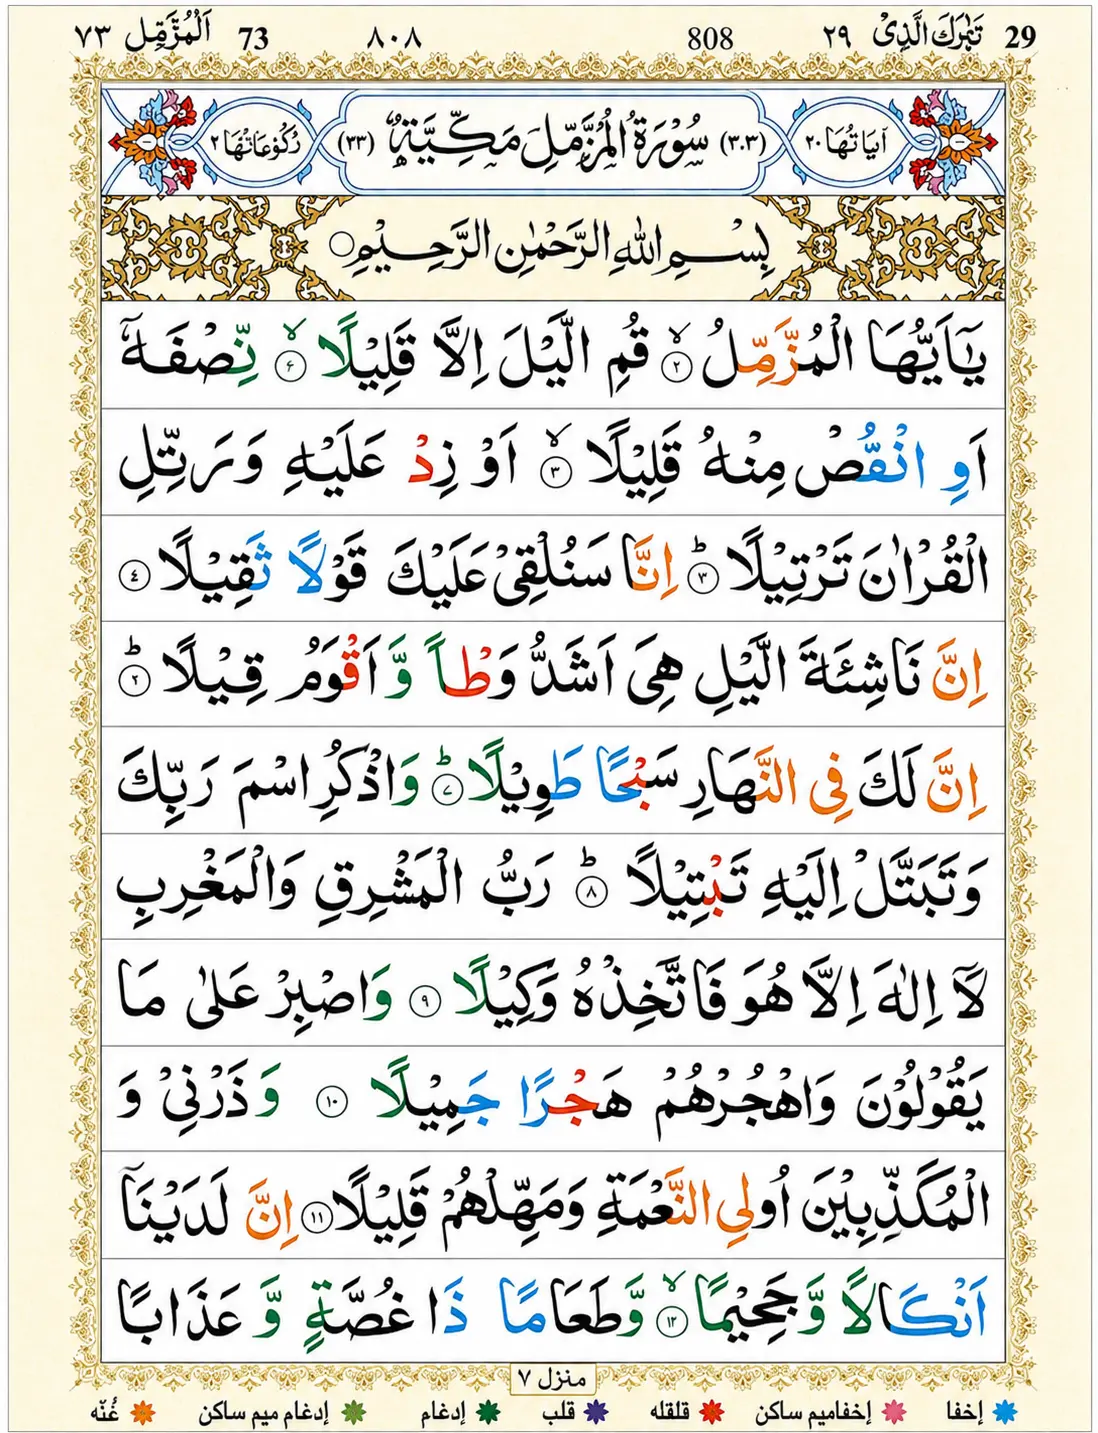 29 تَبٰرَكَ الَّذِىْ ٢٩ 808 ٨٠٨ 73 اَلْمُزَّمِّل ٧٣
اٰيَاتُهَا ٢٠ (٣.٣) سُوْرَةُ الْمُزَّمِّلِ مَكِّيَّةٌ (٣٣) رُكُوْعَاتُهَا ٢
بِسْمِ اللهِ الرَّحْمٰنِ الرَّحِيْمِ
يٰۤاَيُّهَا الْمُزَّمِّلُ ۙ ٢ قُمِ الَّيْلَ اِلَّا قَلِيْلًا ۙ ۶ نِّصْفَهٗۤ
اَوِ انْقُصْ مِنْهُ قَلِيْلًا ۙ ٣ اَوْ زِدْ عَلَيْهِ وَرَتِّلِ
الْقُرْاٰنَ تَرْتِيْلًا ؕ ٣ اِنَّا سَنُلْقِىْ عَلَيْكَ قَوْلًا ثَقِيْلًا ٤
اِنَّ نَاشِئَةَ الَّيْلِ هِىَ اَشَدُّ وَطْاً وَّ اَقْوَمُ قِيْلًا ؕ ٢
اِنَّ لَكَ فِى النَّهَارِ سَبْحًا طَوِيْلًا ؕ ٧ وَاذْكُرِ اسْمَ رَبِّكَ
وَتَبَتَّلْ اِلَيْهِ تَبْتِيْلًا ؕ ٨ رَبُّ الْمَشْرِقِ وَالْمَغْرِبِ
لَاۤ اِلٰهَ اِلَّا هُوَ فَاتَّخِذْهُ وَكِيْلًا ٩ وَاصْبِرْ عَلٰى مَا
يَقُوْلُوْنَ وَاهْجُرْهُمْ هَجْرًا جَمِيْلًا ١٠ وَذَرْنِىْ وَ
الْمُكَذِّبِيْنَ اُولِى النَّعْمَةِ وَمَهِّلْهُمْ قَلِيْلًا ١١ اِنَّ لَدَيْنَاۤ
اَنْكَالًا وَّ جَحِيْمًا ۙ ١٢ وَّطَعَامًا ذَا غُصَّةٍ وَّ عَذَابًا
منزل ٧
إخفا إخفاميم ساكن قلقله قلب إدغام إدغام ميم ساكن غُنّه